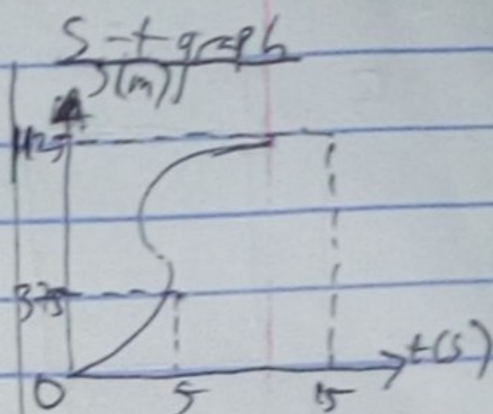 S-t graph
S(m)
112.5
37.5
t(s)
0 5 15